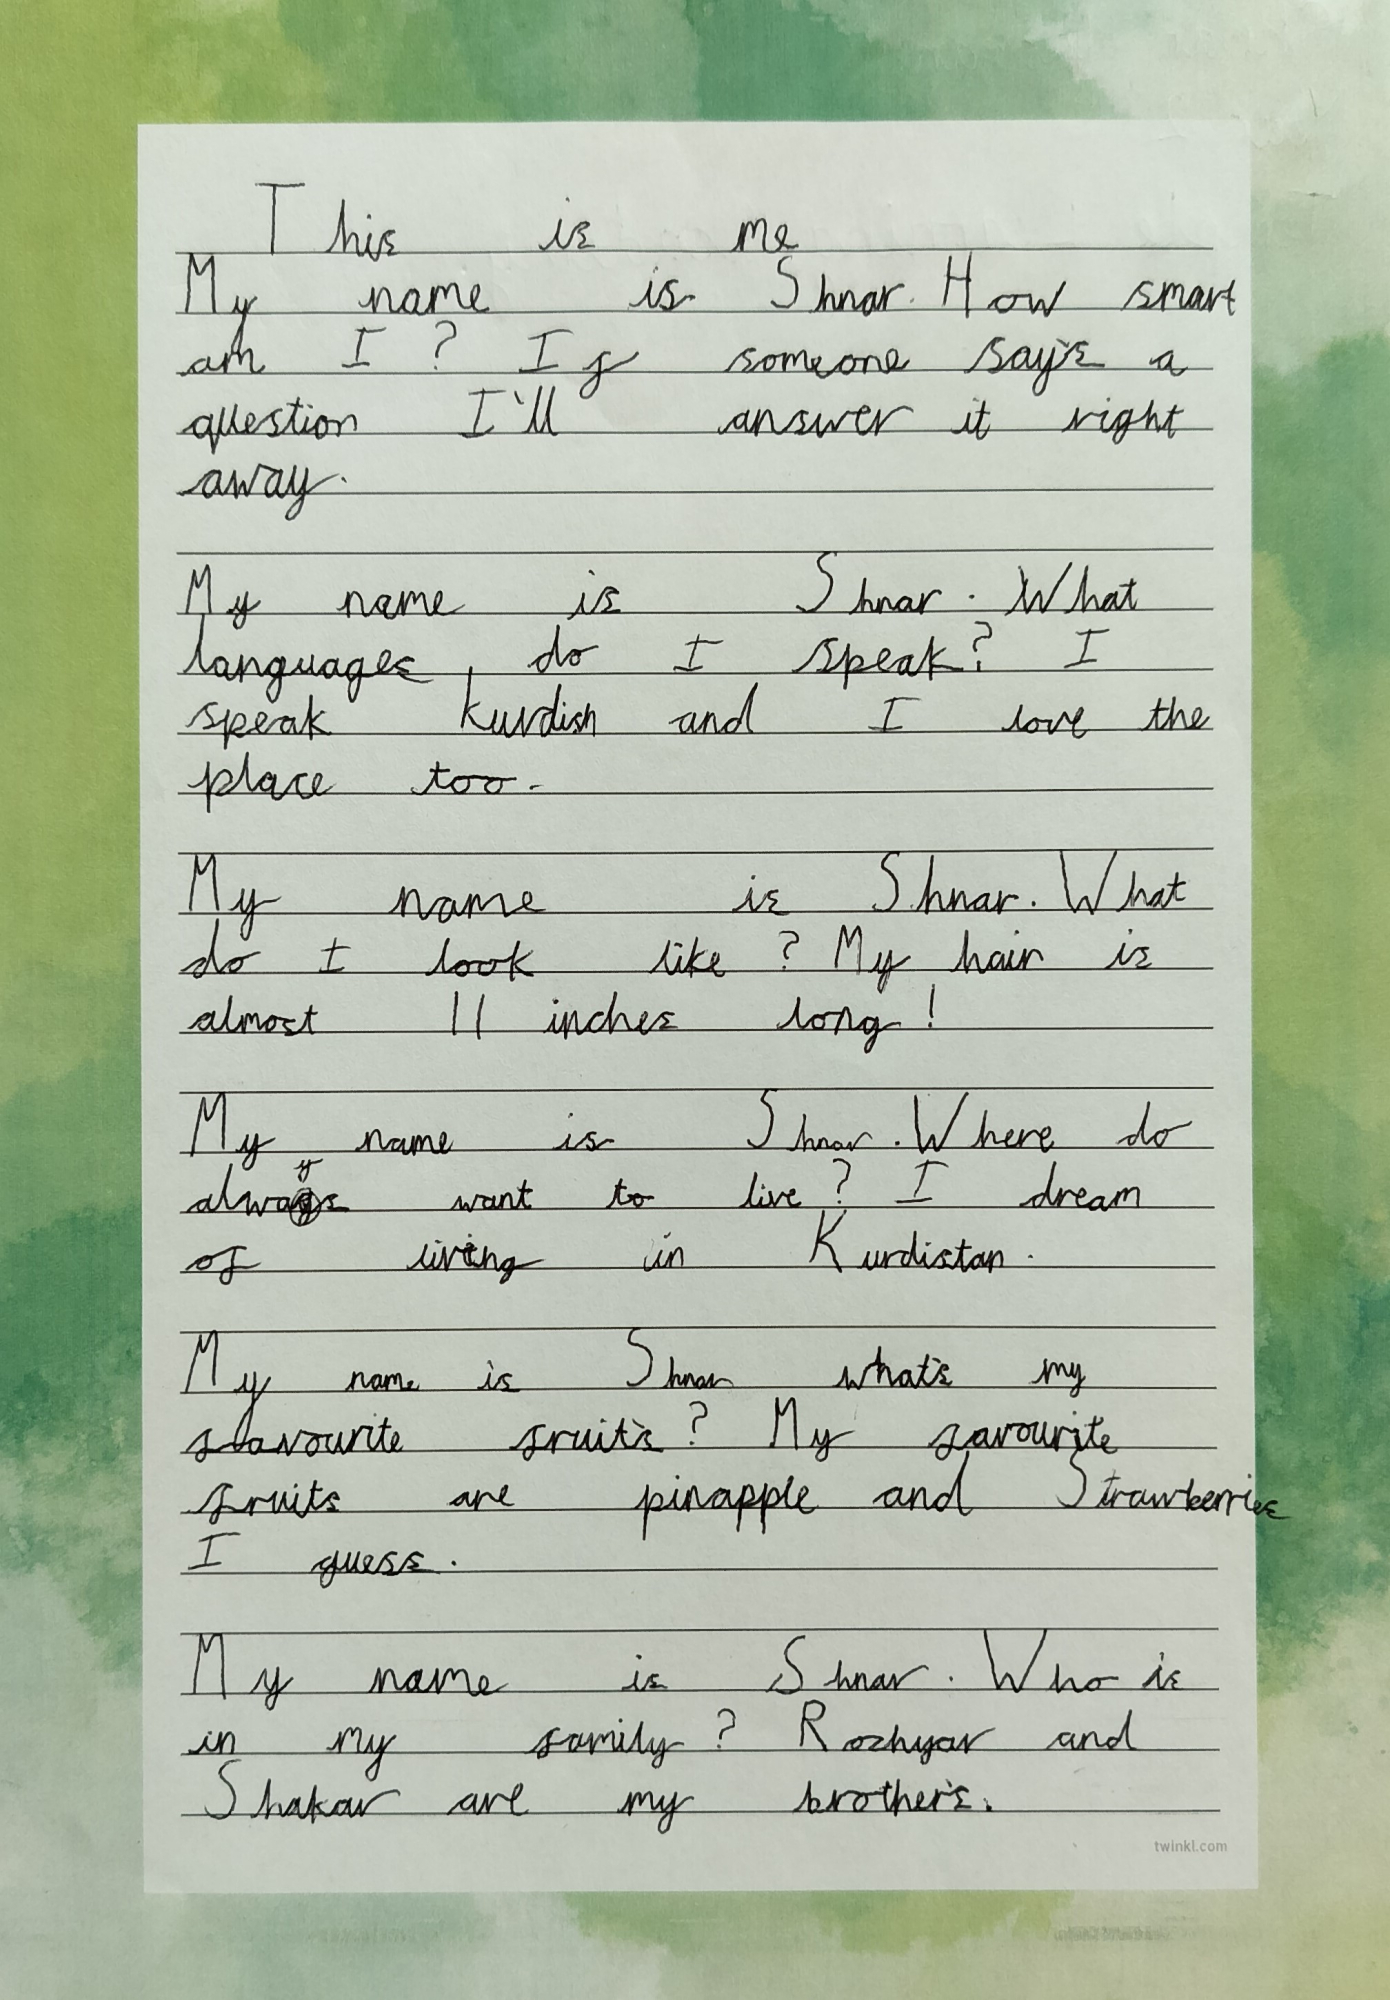 This is me
My name is Shnar. How smart
am I? If someone say's a
question I'll answer it right
away.
My name is Shnar. What
languages, do I speak? I
speak kurdish and I love the
place too.
My name is Shnar. What
do I look like? My hair is
almost 11 inches long!
My name is Shnar. Where do
always want to live? I dream
of living in Kurdistan.
My name is Shnar what's my
favourite fruit's? My favourite
fruits are pinapple and Strawberries
I guess.
My name is Shnar. Who is
in my family? Rozhyar and
Shakar are my brother's.
twinkl.com